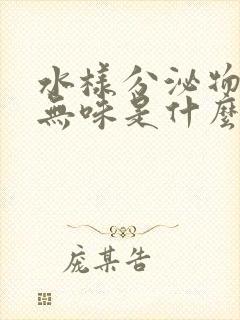 水樣分泌物
無味是什麼
庞某告